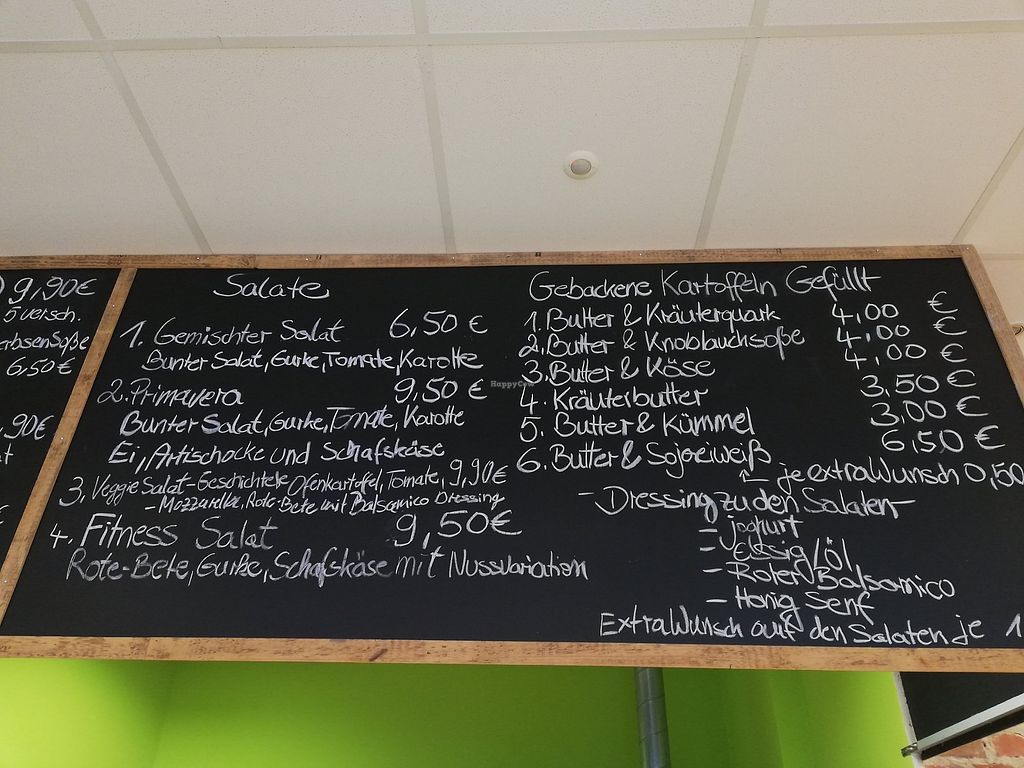 9,90€
5 versch.
erbsenSoße
6,50€
,90€
Salate
1. Gemischter Salat 6,50 €
Bunter Salat, Gurke, Tomate, Karotte
2. Primavera 9,50 €
Bunter Salat, Gurke, Tomate, Karotte
Ei, Artischocke und Schafskäse
3, Veggie Salat-Geschichtete Ofenkartoffel, Tomate, 9,90€
- Mozzarella, Rote-Bete mit Balsamico Dressing
4. Fitness Salat 9,50€
Rote-Bete, Gurke, Schafskäse mit Nussvariation
Gebackene Kartoffeln Gefüllt
1. Butter & Kräuterquark 4,00 €
2. Butter & Knoblauchsoße 4,00 €
3. Butter & Käse 4,00 €
4. Kräuterbutter 3,50 €
5. Butter & Kümmel 3,00 €
6. Butter & Sojaeiweiß 6,50 €
je extraWunsch 0,50
- Dressing zu den Salaten
- Joghurt
- Essig/Öl
- Roter Balsamico
- Honig Senf
ExtraWunsch auf den Salaten je 1
HappyCow